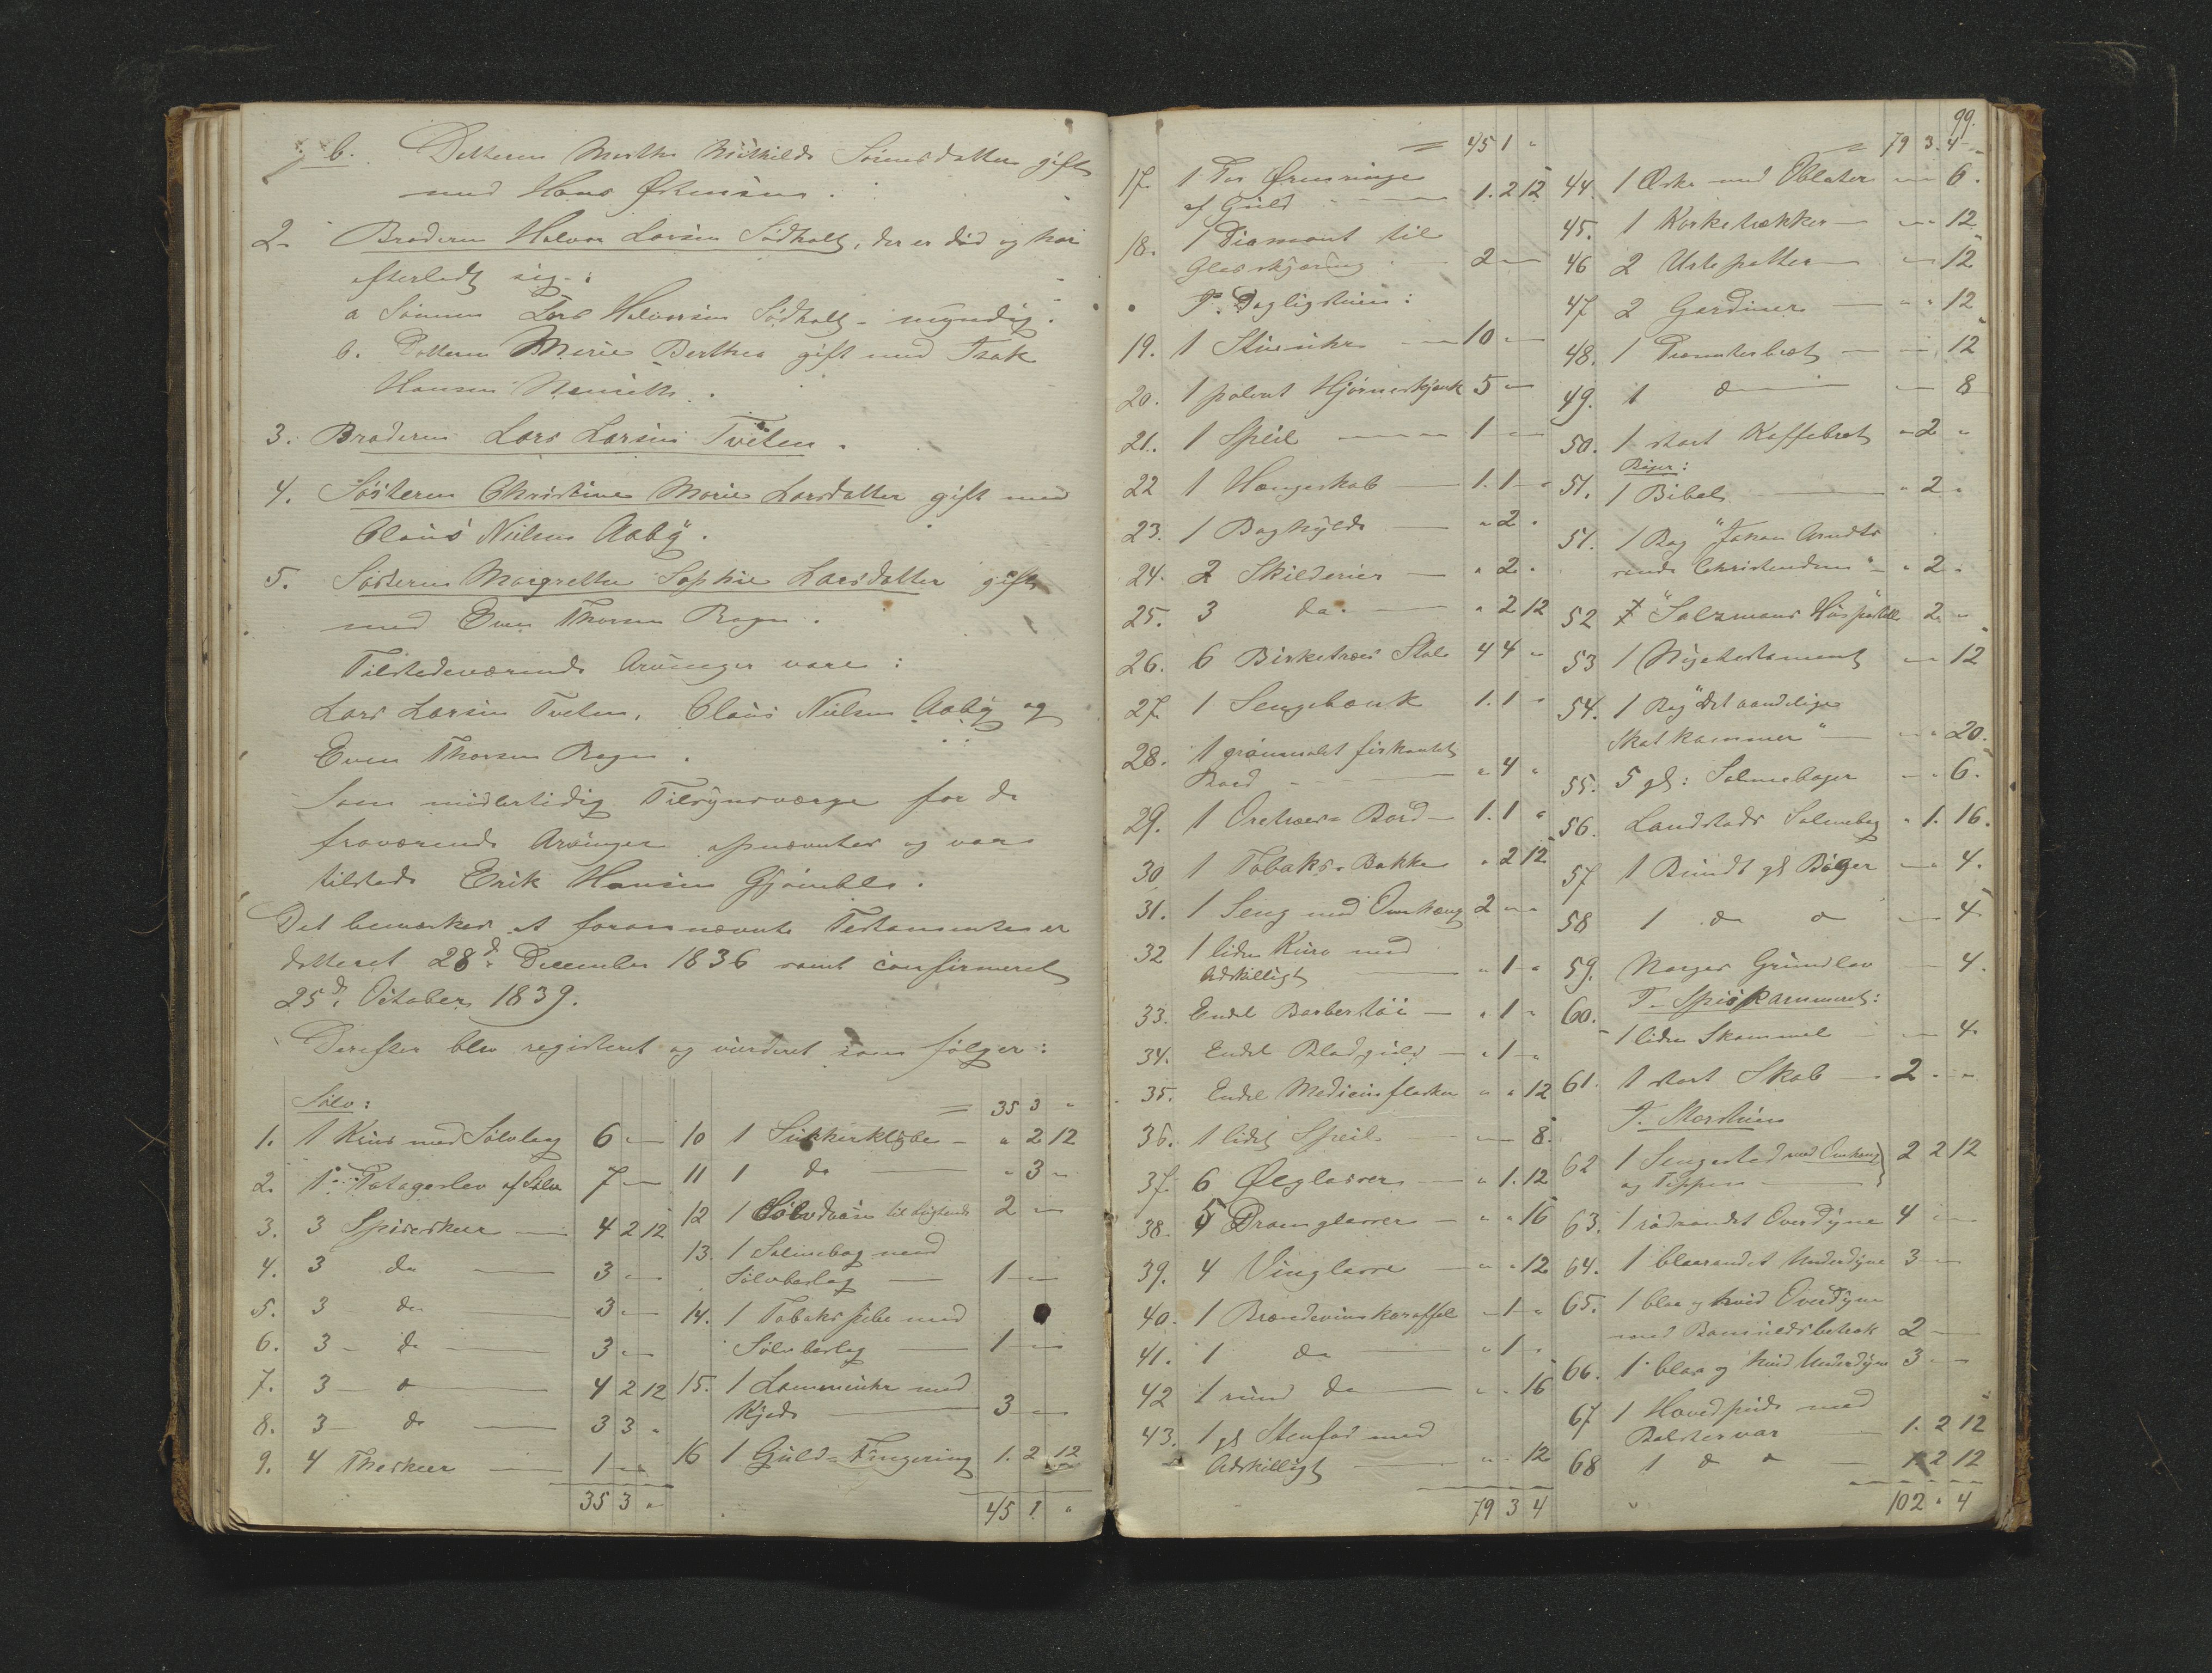 b. Datteren Marthe Mathilde Sørensdatter gift
med Hans
2. Broderen Halvor Larsen Sødholt, der er død og har
efterladt sig:
a Sønnen Lars Halvorsen Sødholt - myndig.
b. Datteren Maria Berthea gift med Isak
Hansen
3. Broderen Lars Larsen Tveten.
4. Søsteren Christine Marie Larsdatter gift med
Claus Nielsen Aaby.
5. Søsteren Margrethe Sophie Larsdatter gift
med Even Thorsen Rogn.
Tilstedeværende Arvinger vare:
Lars Larsen Tveten, Claus Nielsen Aaby og
Even Thorsen Rogn.
Som midlertidig Tilsynsværge for de
fraværende Arvinger opnævntes og var
tilstede Erik Hansen
Det bemærkes at forannævnte Testamente er
dateret 28d. December 1836 samt confirmeret
25d. October 1839.
Derefter blev registeret og vurderet som følger:
Sølv:
1. 1 Krus med Sølvlaag 6 "
2. 1 Potageslev af Sølv 7 "
3. 3 Spiseskeer 4 2 12
4. 3 do 3 "
5. 3 do 3 "
6. 3 do 3 "
7. 3 do 4 2 12
8. 3 do 3 3 "
9. 4 Theskeer 1 "
35 3 "
= 35 3 "
10 1 Sukkerklybe " 2 12
11 1 do " 3 "
12 1 Sølvdaase 2 "
13. 1 Salmebog med
Sølvbeslag 1 "
14. 1 Tobakspibe med
Sølvbeslag 1 "
15. 1 Lommeuhr med
Kjede 3 "
16 1 Guld-Fingering 1. 2 12
45 1. "
= 45 1 "
17. 1 Par Ørenringe
af Guld 1. 2 12
18. 1 Diamant til
Glasskjæring 2 "
I Dagligstuen:
19. 1 Stueuhr 10 "
20. 1 poleret Hjørneskjænk 5 "
21. 1 Speil 1 "
22 1 Hængeskab 1. 1 "
23. 1 Boghylde " 2 "
24. 2 Skilderier " 2 "
25. 3 do. " 2 12
26. 6 Birketræes Stole 4 4 "
27. 1 Sengebænk 1. 1 "
28. 1 grønmalet firkantet
Bord " 4 "
29. 1 Oretræes-Bord 1. 1 "
30 1 Tobaks-Bakke " 2 12
31. 1 Seng med Omhæng 2 "
32 1 liden Kurv med
Adskilligt " 1 "
33. Endel Barbertøi " 1 "
34. Endel Bladguld " 1 "
35. Endel Medicinflasker " " 12
36. 1 lidet Speil " 8.
37. 6 Ølglasser " 1. 12
38. 5 Dramglasser " " 16
39. 4 Vinglasse " " 12
40. 1 Brændevinskaraffel " 1 "
41. 1 do " 1 "
42 1 rund do " " 16
43. 1 gl Stenfad med
Adskilligt " " 12
79 3 4
99.
= 79 3. 4
44. 1 Æske med Oblater " 6.
45. 1 Korketrækker " 12
46 2 Urtepotter " 12
47 2 Gardiner " " 12
48. 1 Præsenterbræt " 12
49. 1 do " 8
50. 1 stort Kaffebræt " 2 "
Bøger:
51. 1 Bibel " 2 "
51. 1 Bog "Johan Arndts
sande Christendom" " 2 "
52 "Salzmans Huspostille" 2 "
53 1 Nyetestament " 12
54. 1 Bog "Det aandelige
Skatkammer" " " 20.
55. 5 gl: Salmebøger " " 6.
56. Landstads Salmebog " 1. 16.
57 1 Bundt gl Bøger " 4.
58 1 do do " 4
59. Norges Grundlov " 4.
I Spiskammeret:
60. 1 liden Skammel " 4
61. 1 stort Skab 2 " "
I Storstuen
62 1 Sengested med Omhæng
og Teppe 2 2 12
63. 1 rødrandet Overdyne 4 "
64. 1 blaarandet Underdyne 3 "
65. 1 blaa og hvid Overdyne
med Bomuldsbetræk 2 "
66. 1 blaa og hvid Underdyne 3 "
67 1 Hovedpude med
Bolstervar 1. 2 12
68 1 do do 1 2 12
102 " 4